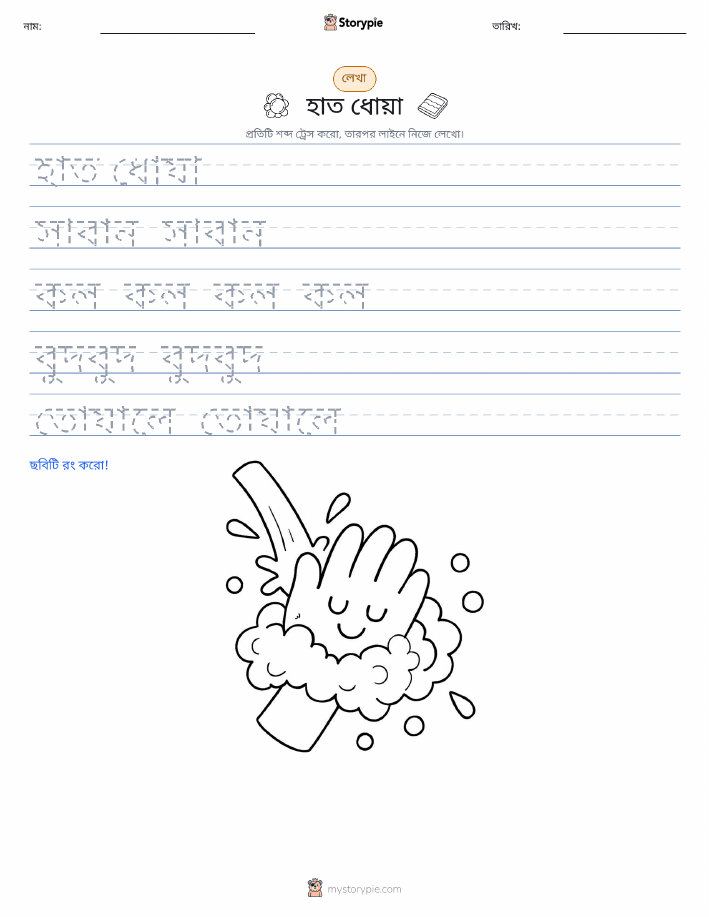 নাম:
Storypie
তারিখ:
লেখা
হাত ধোয়া
প্রতিটি শব্দ ট্রেস করো, তারপর লাইনে নিজে লেখো।
হাত ধোয়া
সাবান সাবান
কল কল কল কল
বুদবুদ বুদবুদ
তোয়ালে তোয়ালে
ছবিটি রং করো!
mystorypie.com